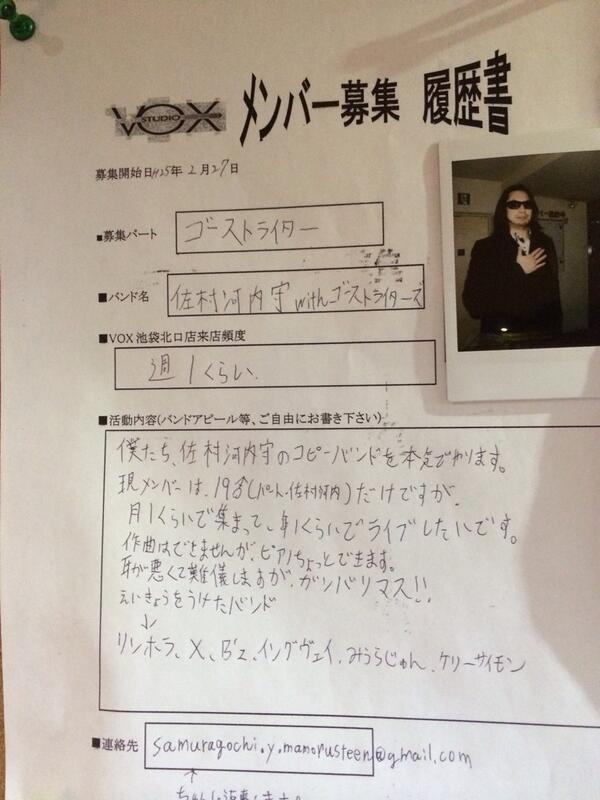 VOX STUDIO
メンバー募集 履歴書
募集開始日H25年2月27日
■募集パート ゴーストライター
■バンド名 佐村河内守withゴーストライターズ
■VOX池袋北口店来店頻度
週1くらい.
■活動内容(バンドアピール等、ご自由にお書き下さい)
僕たち、佐村河内守のコピーバンドを本気でやります。
現メンバーは、1名(パート・佐村河内)だけですが、
月1くらいで集まって、年1くらいでライブしたいです。
作曲はできませんが、ピアノちょっとできます。
耳が悪くて難儀しますが、ガンバリマス!!
えいきょうをうけたバンド
↓
リンホラ、X、B'z、イングヴェイ、みうらじゅん、ケリーサイモン
■連絡先 samuragochi.y.manorusteen@gmail.com
↑